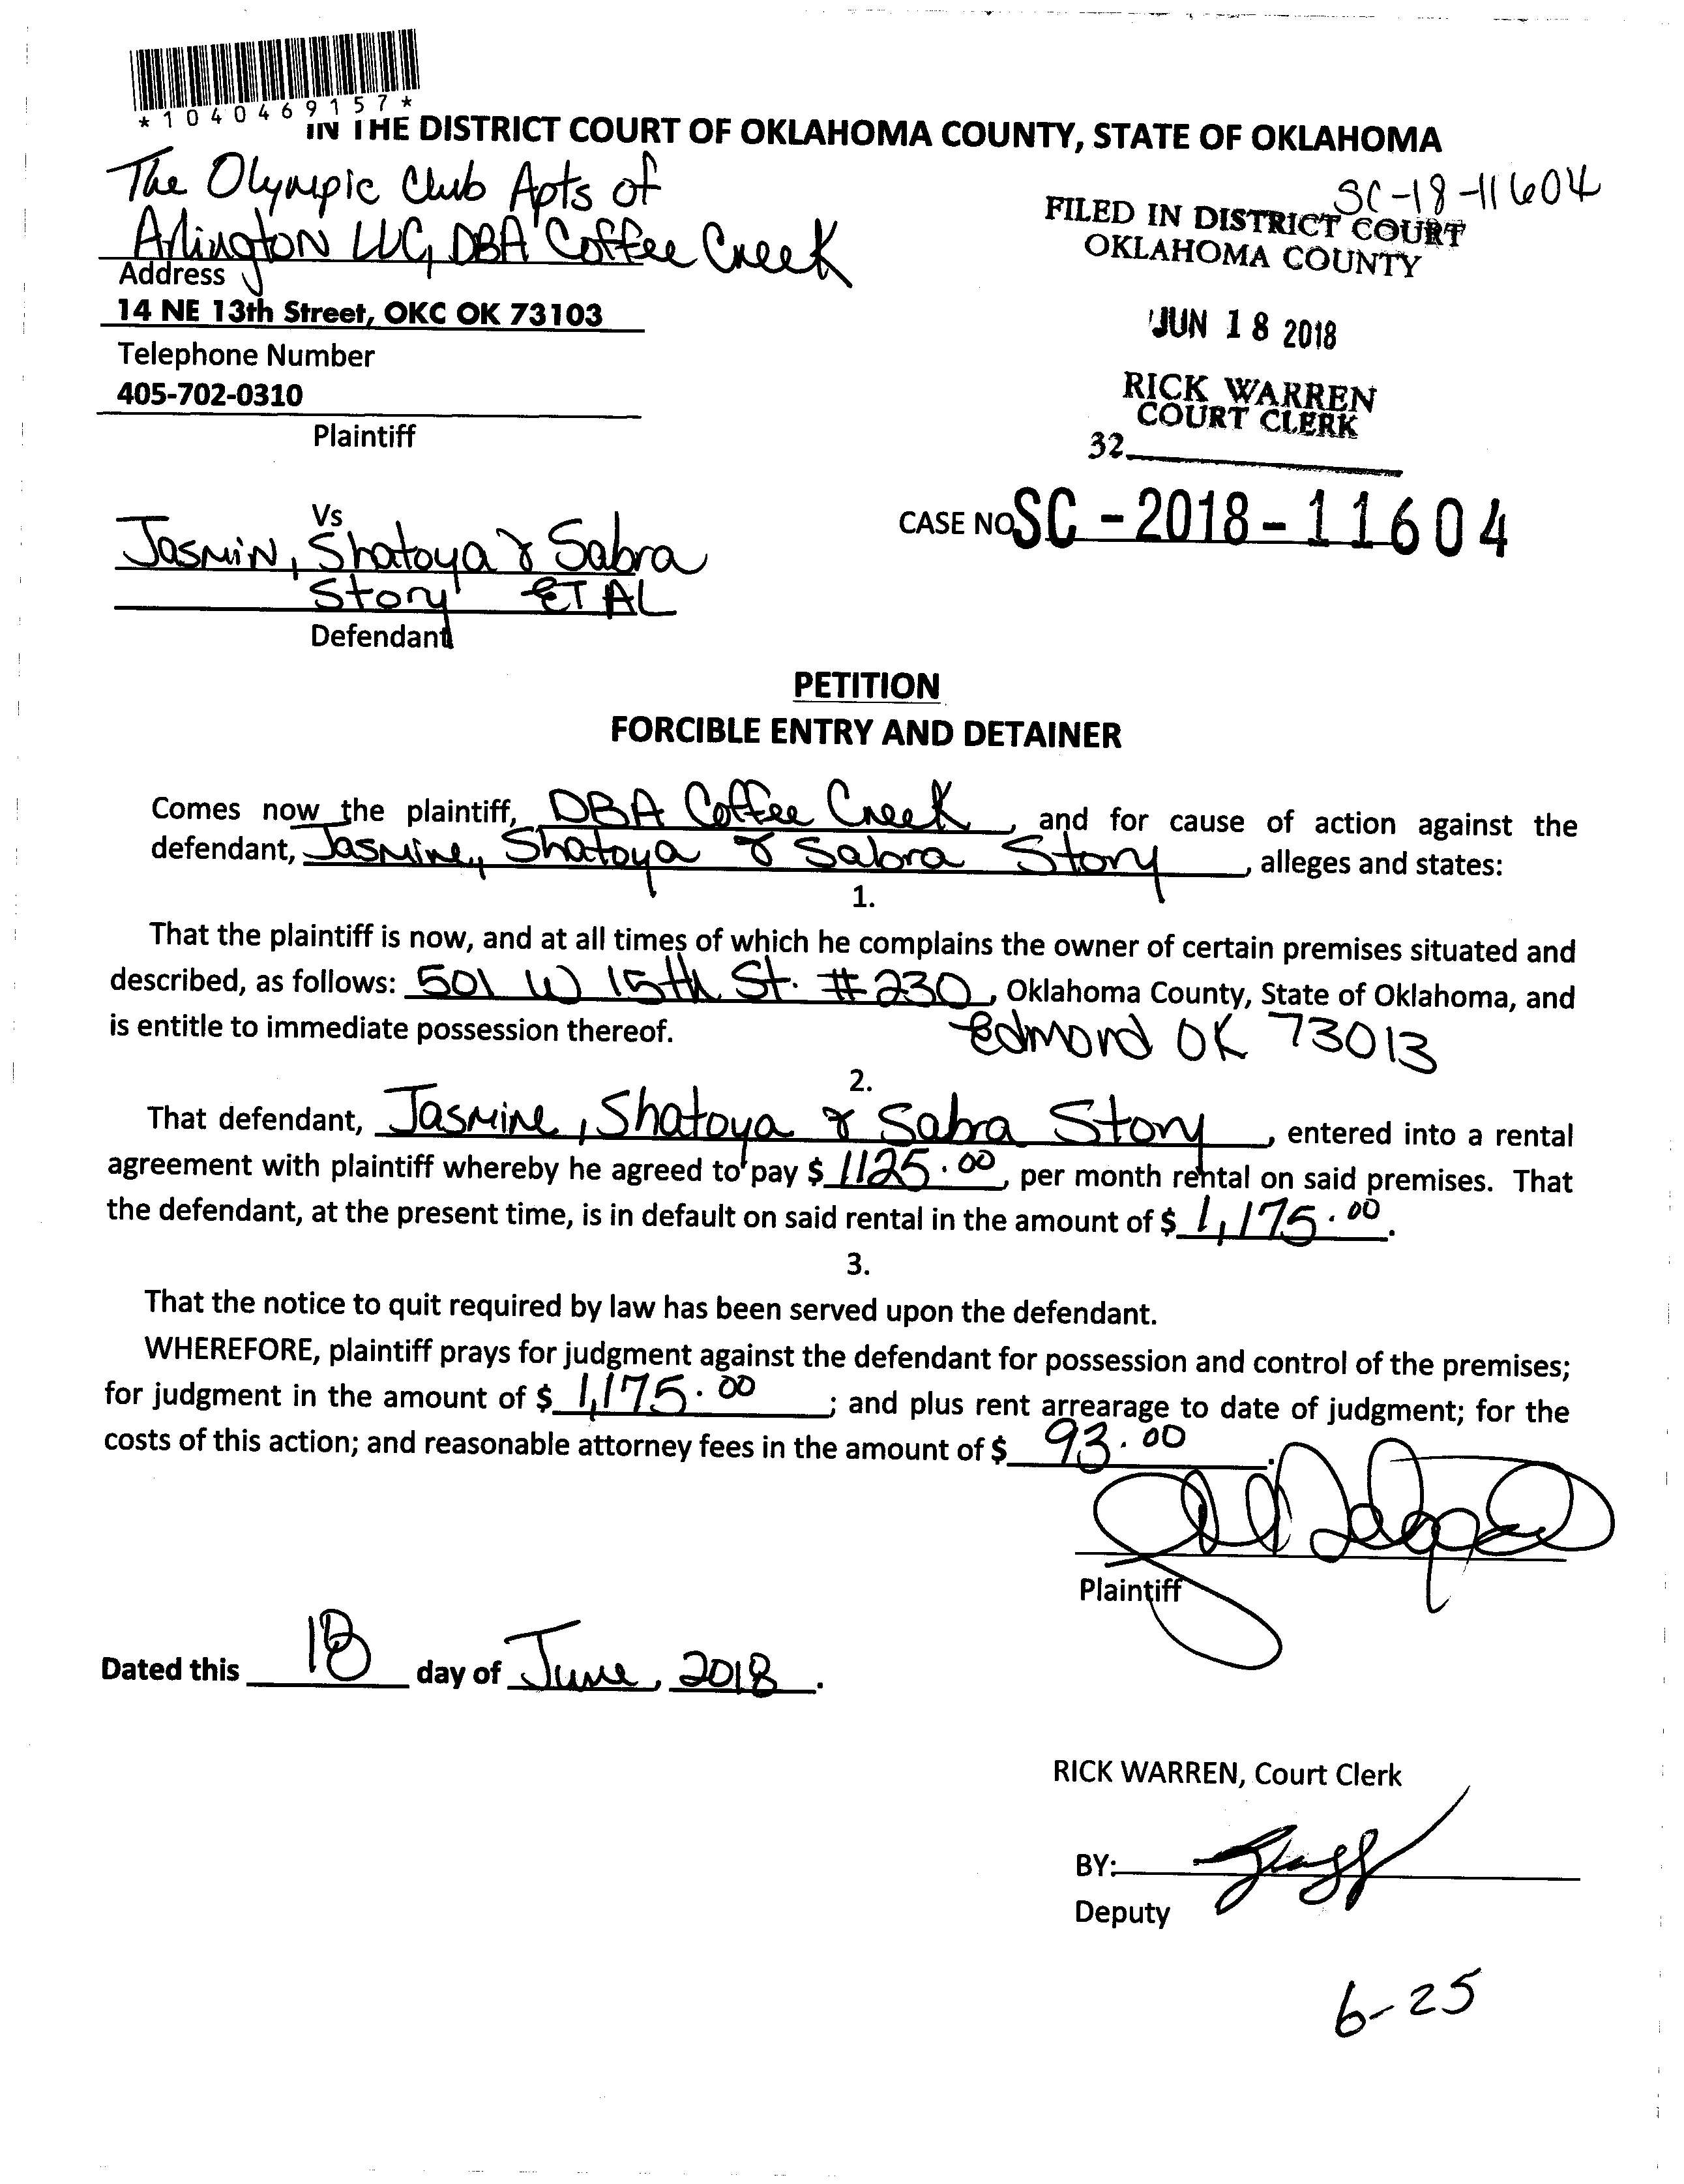 *1040469157*
IN THE DISTRICT COURT OF OKLAHOMA COUNTY, STATE OF OKLAHOMA
The Olympic Club Apts of
Arlington LLC, DBA Coffee Creek
Address
14 NE 13th Street, OKC OK 73103
Telephone Number
405-702-0310
Plaintiff
SC-18-11604
FILED IN DISTRICT COURT
OKLAHOMA COUNTY
JUN 18 2018
RICK WARREN
COURT CLERK
32
Vs
Jasmin, Shatoya & Sabra
Story ET AL
Defendant
CASE NO SC-2018-11604
PETITION
FORCIBLE ENTRY AND DETAINER
Comes now the plaintiff, DBA Coffee Creek, and for cause of action against the
defendant, Jasmine, Shatoya & Sabra Story, alleges and states:
1.
That the plaintiff is now, and at all times of which he complains the owner of certain premises situated and
described, as follows: 501 W 15th St. #230, Oklahoma County, State of Oklahoma, and
is entitle to immediate possession thereof. Edmond OK 73013
2.
That defendant, Jasmine, Shatoya & Sabra Story, entered into a rental
agreement with plaintiff whereby he agreed to pay $ 1125.00, per month rental on said premises. That
the defendant, at the present time, is in default on said rental in the amount of $ 1,175.00.
3.
That the notice to quit required by law has been served upon the defendant.
WHEREFORE, plaintiff prays for judgment against the defendant for possession and control of the premises;
for judgment in the amount of $ 1,175.00; and plus rent arrearage to date of judgment; for the
costs of this action; and reasonable attorney fees in the amount of $ 93.00.
Plaintiff
Dated this 18 day of June, 2018.
RICK WARREN, Court Clerk
BY:
Deputy
6-25